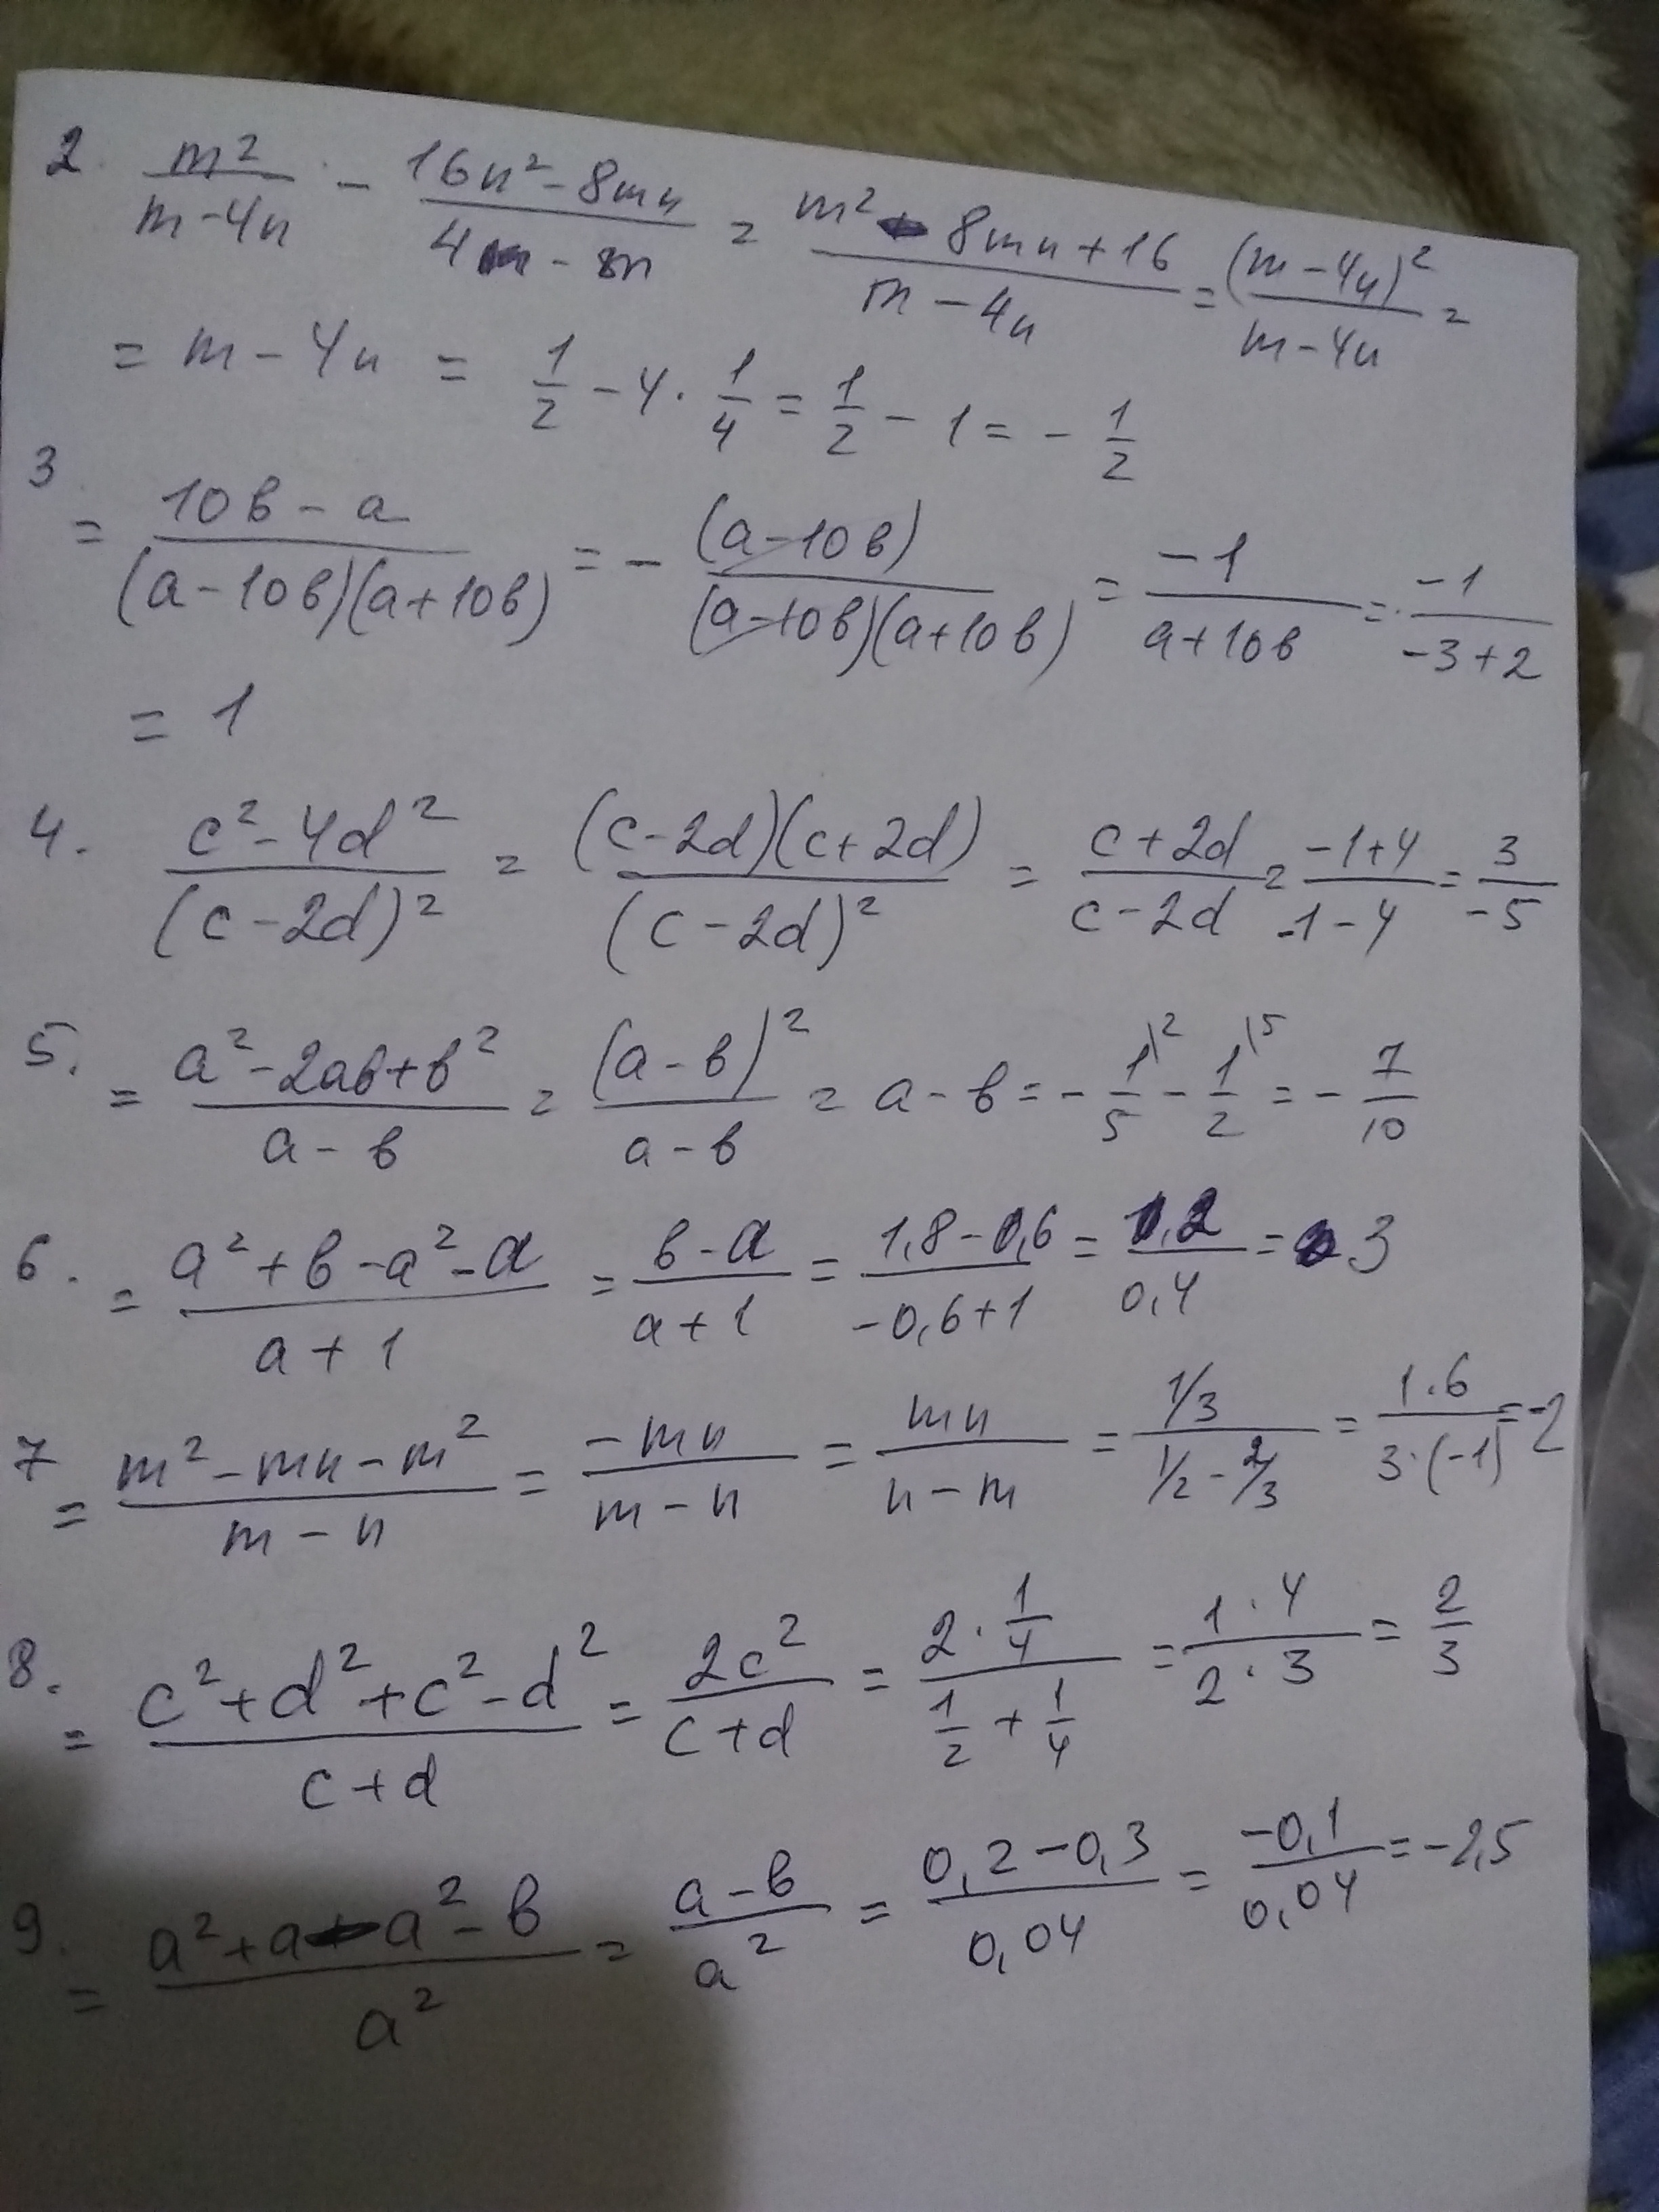 2. m²/(m-4n) - (16n²-8mn)/(4n-8n) = (m²-8mn+16)/(m-4n) = (m-4n)²/(m-4n) =
= m-4n = 1/2 - 4·1/4 = 1/2 - 1 = -1/2
3
= (10в-a)/((a-10в)(a+10в)) = -(a-10в)/((a-10в)(a+10в)) = -1/(a+10в) = -1/(-3+2)
= 1
4. (c²-4d²)/(c-2d)² = ((c-2d)(c+2d))/(c-2d)² = (c+2d)/(c-2d) = (-1+4)/(-1-4) = 3/-5
5. = (a²-2aв+в²)/(a-в) = (a-в)²/(a-в) = a-в = -1\²/5 - 1\⁵/2 = -7/10
6. = (a²+в-a²-a)/(a+1) = (в-a)/(a+1) = (1,8-0,6)/(-0,6+1) = 1,2/0,4 = 3
7 = (m²-mn-m²)/(m-n) = -mn/(m-n) = mn/(n-m) = (1/3)/(1/2-2/3) = (1·6)/(3·(-1)) = -2
8. = (c²+d²+c²-d²)/(c+d) = 2c²/(c+d) = (2·1/4)/(1/2+1/4) = (1·4)/(2·3) = 2/3
9. = (a²+a-a²-в)/a² = (a-в)/a² = (0,2-0,3)/0,04 = -0,1/0,04 = -2,5